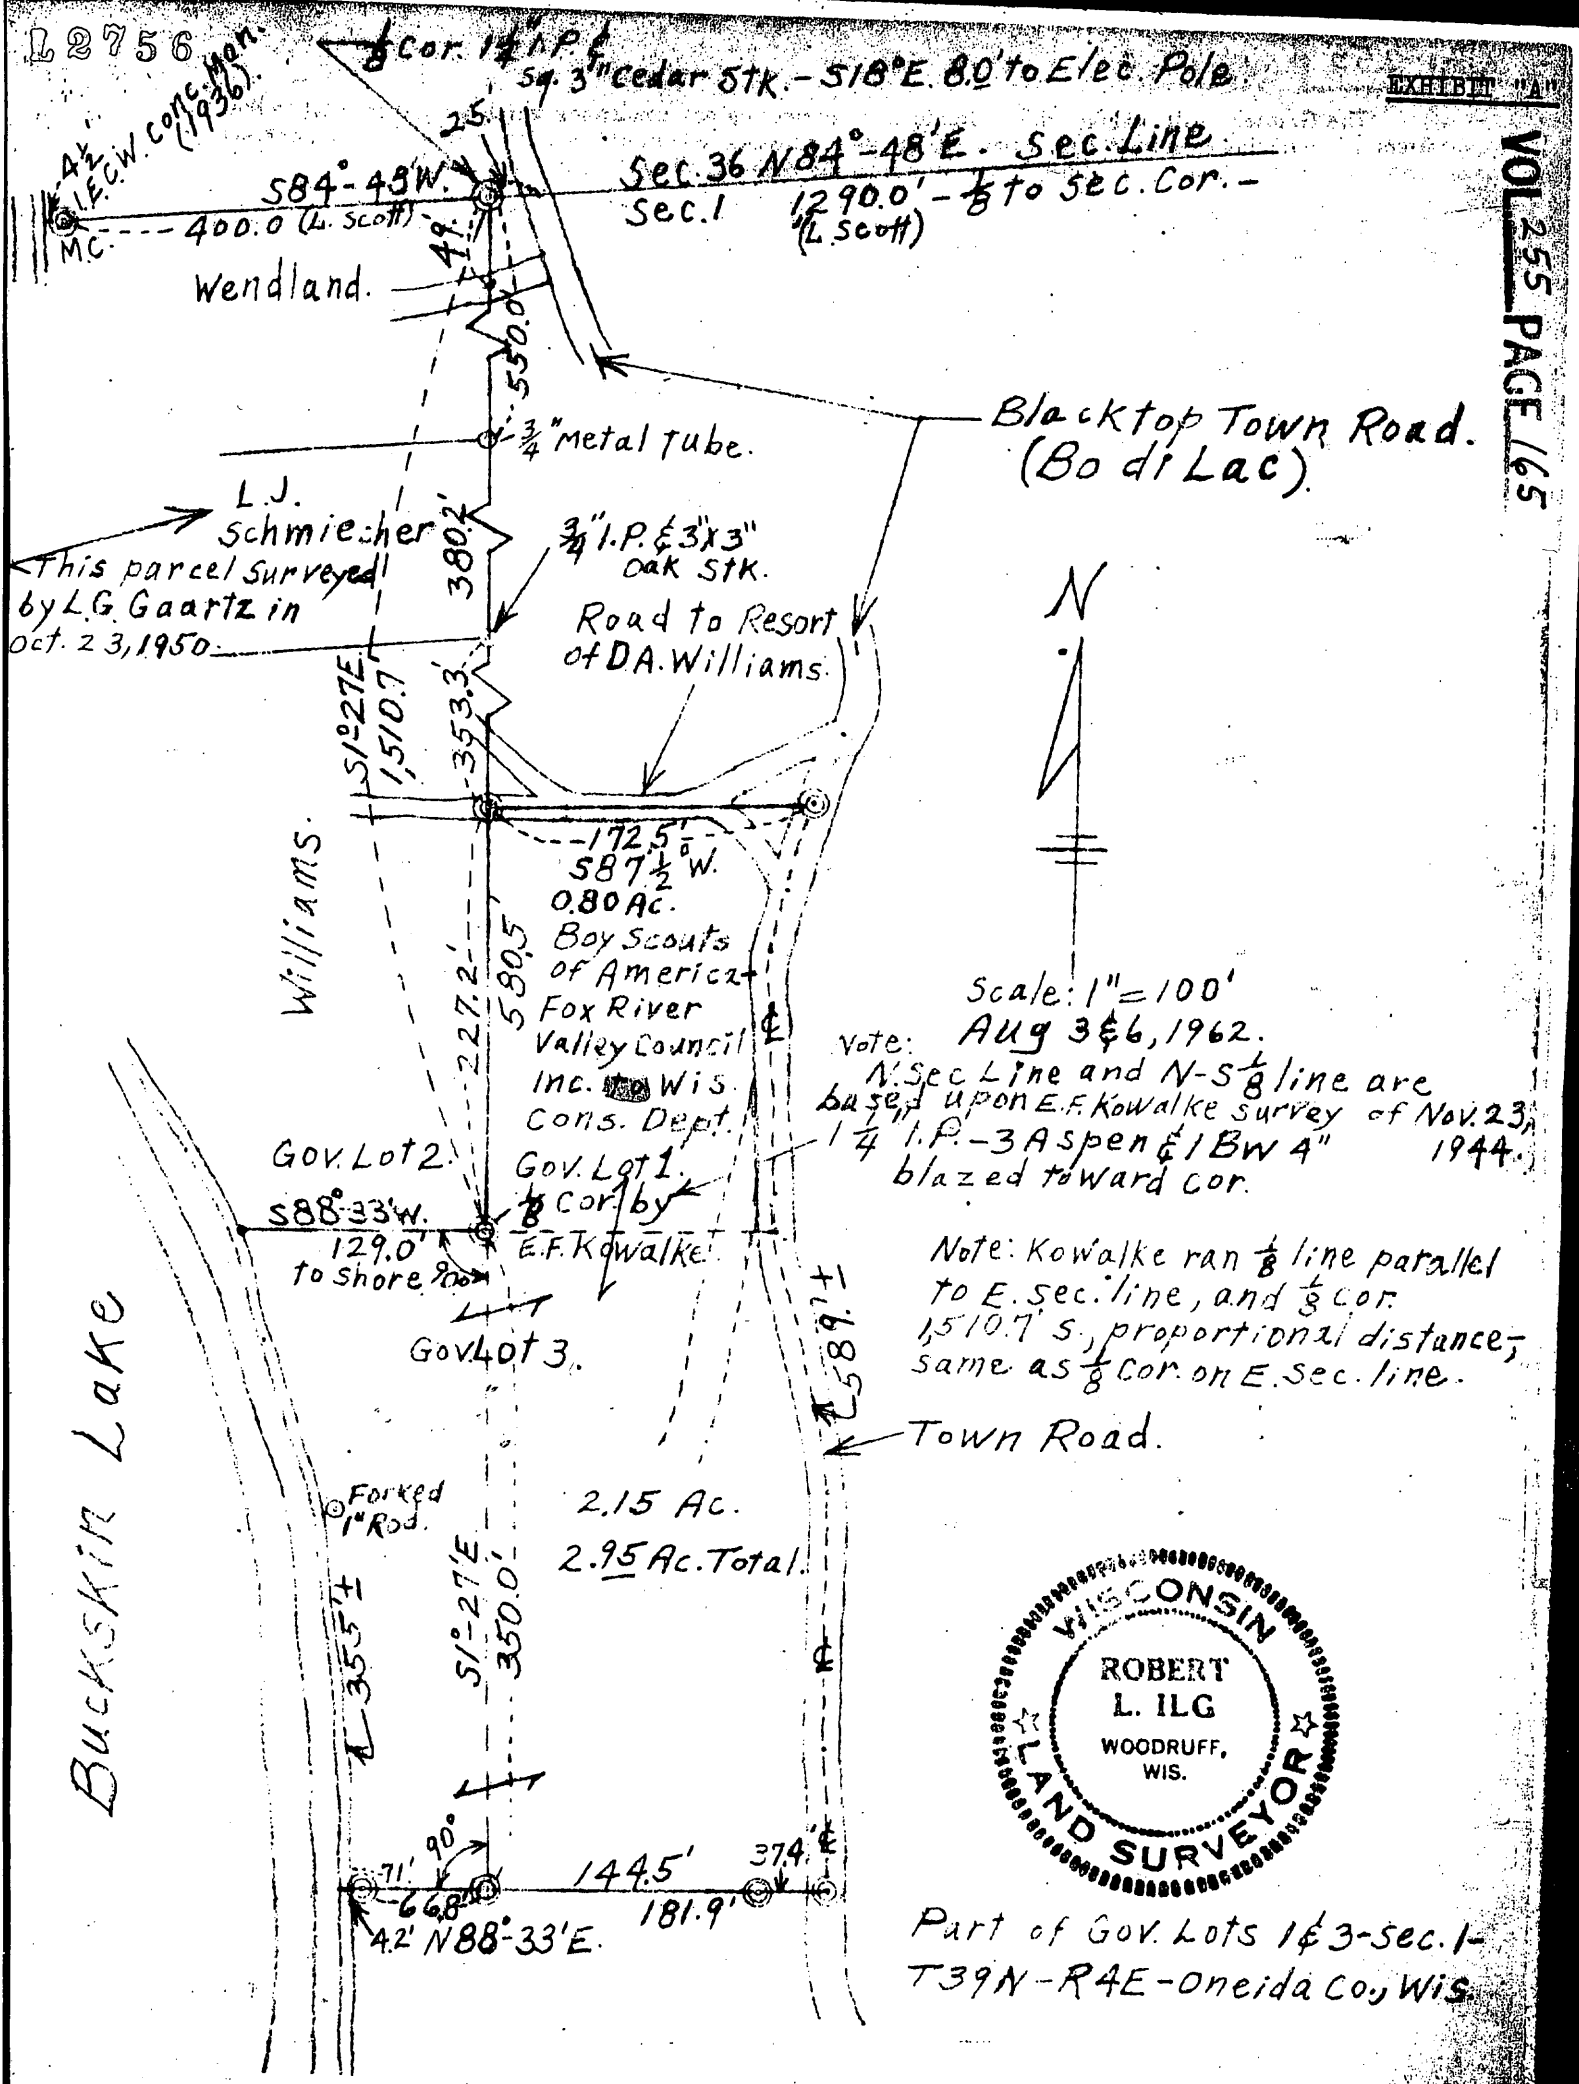 L2756
1/8 Cor. 1¼" I.P. &
Sq. 3" Cedar Stk. - S18°E. 8.0' to Elec. Pole.
EXHIBIT "A"
VOL 255 PAGE 165
4½'
I.E.C.W. Conc. Mon.
(1936).
M.C.
S84°-48'W.
400.0 (L. Scott)
25
49.
Sec. 36 N84°-48'E. Sec. Line
Sec. 1
1290.0' - 1/8 to Sec. Cor. -
(L. Scott)
Wendland.
550.0'
¾" Metal Tube.
Blacktop Town Road.
(Bo di Lac).
L.J.
Schmiecher
This parcel Surveyed
by L.G. Gaartz in
Oct. 23, 1950.
380.2'
¾" I.P. & 3"x3"
Oak Stk.
Road to Resort
of D.A. Williams.
N
S1°-27'E
1,510.7'
353.3'
172.5'±
S87½°W.
0.80 Ac.
Boy Scouts
of America-
Fox River
Valley Council
Inc. to Wis.
Cons. Dept.
Williams.
227.2'
580.5'
Scale: 1" = 100'
Aug 3 & 6, 1962.
Note:
N. Sec Line and N-S 1/8 line are
based upon E.F. Kowalke survey of Nov. 23,
1944.
1¼" I.P. - 3 Aspen & 1 BW 4"
blazed toward cor.
Gov. Lot 2.
Gov. Lot 1.
1/8 Cor. by
E.F. Kowalke
S88°-33'W.
129.0'
to shore
90°
Gov Lot 3.
Note: Kowalke ran 1/8 line parallel
to E. sec. line, and 1/8 cor.
1,510.7' S., proportional distance,
same as 1/8 Cor. on E. Sec. line.
589.'±
Town Road.
Buckskin Lake
Forked
1" Rod.
2.15 Ac.
2.95 Ac. Total.
355'±
S1°-27'E
350.0'
WISCONSIN
ROBERT
L. ILG
WOODRUFF,
WIS.
LAND SURVEYOR
90°
71'
66.8'
4.2'
N88°-33'E.
144.5'
181.9'
37.4'
Part of Gov. Lots 1 & 3 - Sec. 1-
T39N - R4E - Oneida Co., Wis.